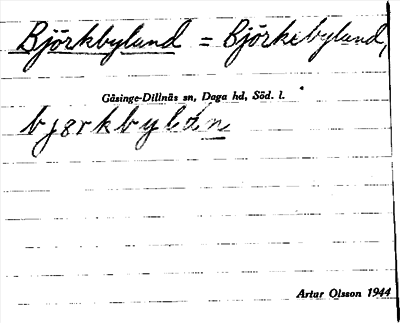 Björkbylund = Björkebylund,
Gåsinge-Dillnäs sn, Daga hd, Söd. l.
Artur Olsson 1944